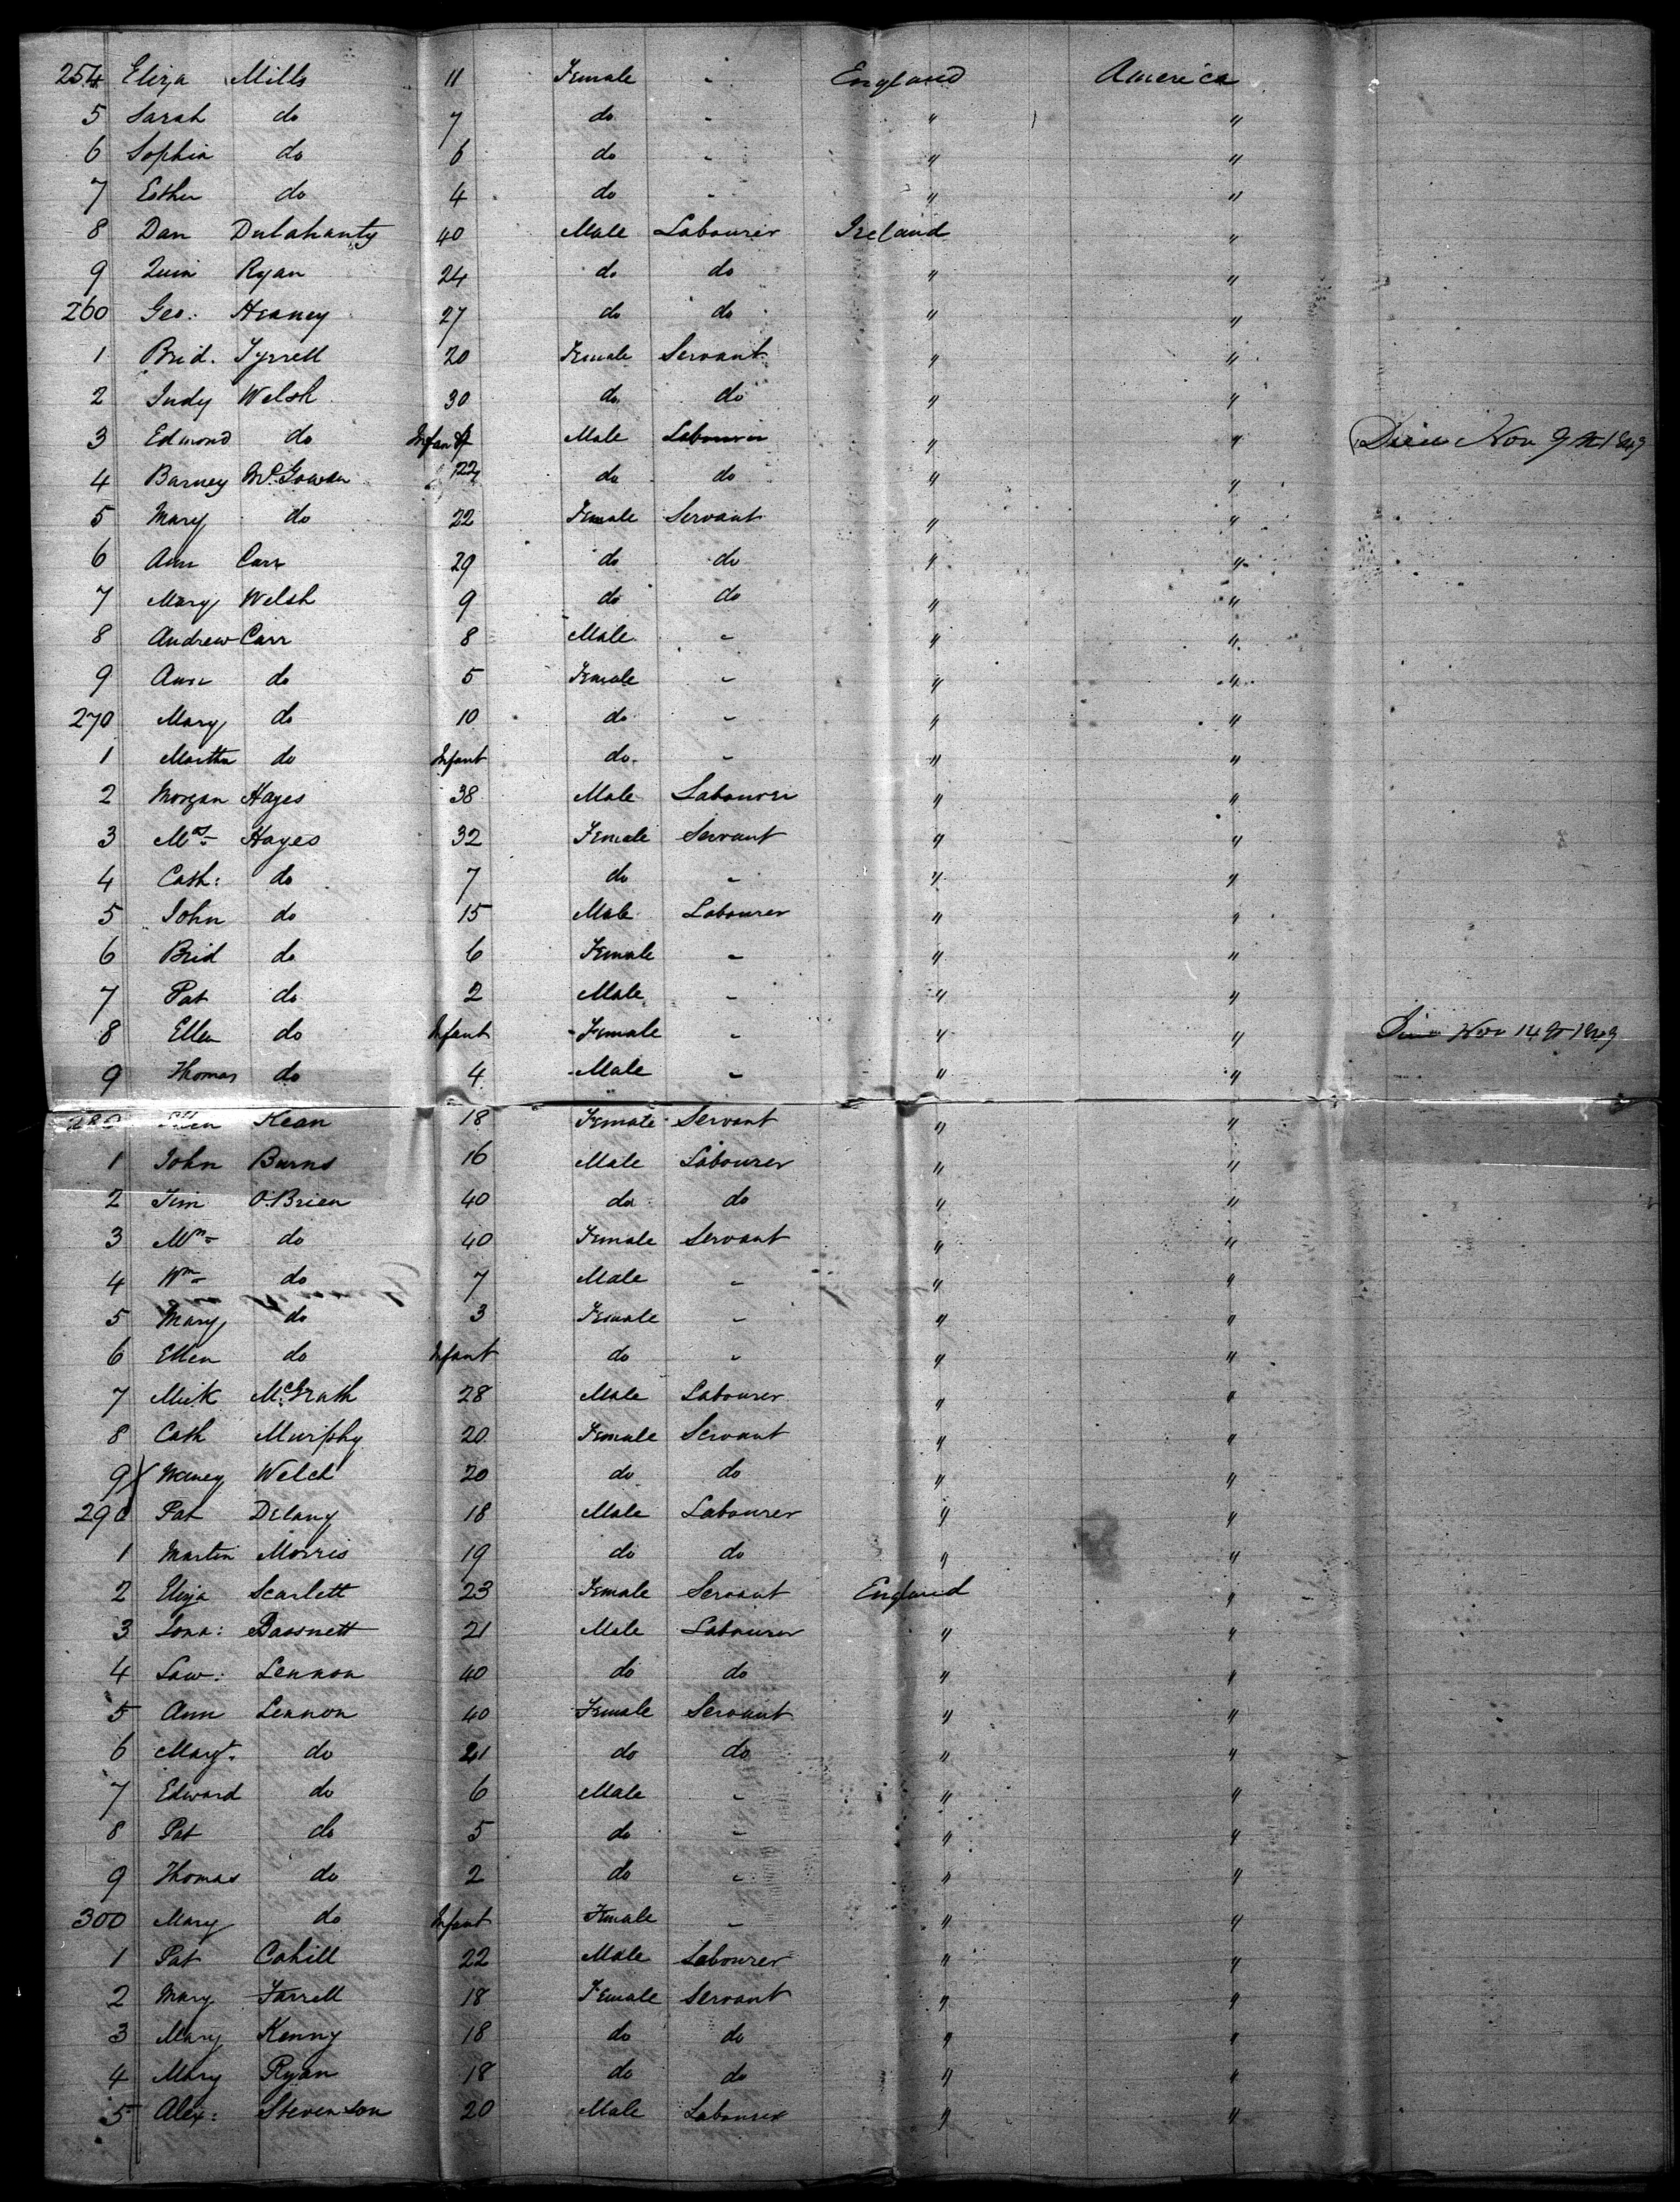 254 Eliza Mills 11 Female " England America
5 Sarah do 7 do " " "
6 Sophia do 6 do " " "
7 Esther do 4 do " " "
8 Dan Dulahanty 40 Male Labourer Ireland "
9 Ryan 24 do do " "
260 Geo: Heaney 27 do do " "
1 Brid. Tyrrell 20 Female Servant " "
2 Judy Welsh 30 do do " "
3 Edmond do Infant Male Labourer " " Died Nov 9th 1849
4 Barney McGowan 22 do do " "
5 Mary do 22 Female Servant " "
6 Ann Carr 29 do do " "
7 Mary Welsh 9 do do " "
8 Andrew Carr 8 Male " " "
9 Ann do 5 Female " " "
270 Mary do 10 do " " "
1 Martha do Infant do " " "
2 Morgan Hayes 38 Male Labourer " "
3 Mrs Hayes 32 Female Servant " "
4 Cath: do 7 do " " "
5 John do 15 Male Labourer " "
6 Brid do 6 Female " " "
7 Pat do 2 Male " " "
8 Ellen do Infant Female " " " Died Nov 14th 1849
9 Thomas do 4 Male " " "
280 Ellen Kean 18 Female Servant " "
1 John Burns 16 Male Labourer " "
2 Tim O'Brien 40 do do " "
3 do 40 Female Servant " "
4 Wm do 7 Male " " "
5 Mary do 3 Female " " "
6 Ellen do Infant do " " "
7 Mick McGrath 28 Male Labourer " "
8 Cath Murphy 20 Female Servant " "
9 Welch 20 do do " "
290 Pat Delany 18 Male Labourer " "
1 Martin Morris 19 do do " "
2 Eliza Scarlett 23 Female Servant England "
3 Bassnett 21 Male Labourer " "
4 Law: Lennon 40 do do " "
5 Ann Lennon 40 Female Servant " "
6 Margt. do 21 do do " "
7 Edward do 6 Male " " "
8 Pat do 5 do " " "
9 Thomas do 2 do " " "
300 Mary do Infant Female " " "
1 Pat Cahill 22 Male Labourer " "
2 Mary Farrell 18 Female Servant " "
3 Mary Kenny 18 do do " "
4 Mary Ryan 18 do do " "
5 Alex: Stevenson 20 Male Labourer " "